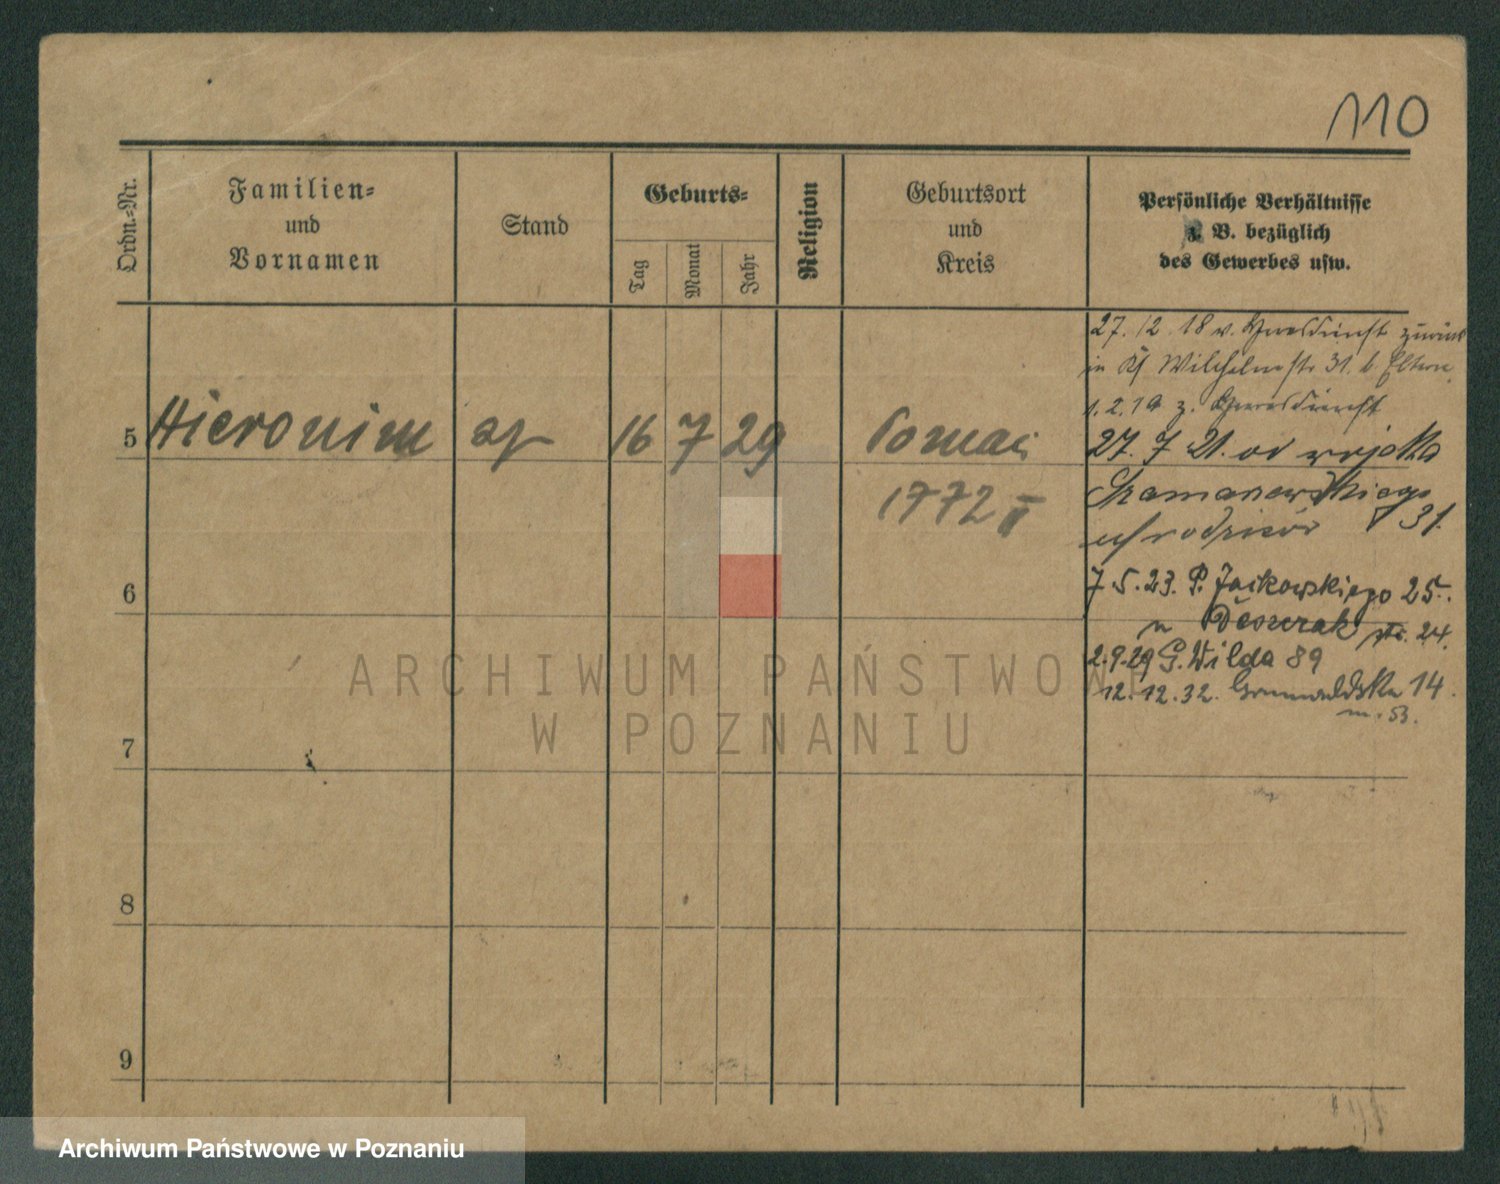 110
Ordn.-Nr.
Familien-
und
Vornamen
Stand
Geburts-
Tag
Monat
Jahr
Religion
Geburtsort
und
Kreis
Persönliche Verhältnisse
z. B. bezüglich
des Gewerbes usw.
27. 12. 18 v. Heeresdienst zurück
in Wilhelmstr 31. b. Eltern
1. 2. 19 z. Heeresdienst
5 Hieronim 16 7 29
27. 7 21. od wojska
1772 II
Szamarzewskiego
31.
u rodziców
6
7. 5. 23. P. Jackowskiego 25.
24.
2.9.29 G. Wilda 89
12. 12. 32. Grunwaldzka 14
m. 53.
7
8
9
ARCHIWUM PAŃSTWOWE
W POZNANIU
Archiwum Państwowe w Poznaniu